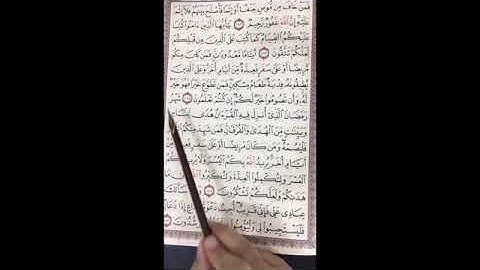 فَمَنْ خَافَ مِن مُّوصٍ جَنَفًا أَوْ إِثْمًا فَأَصْلَحَ بَيْنَهُمْ فَلَآ إِثْمَ
عَلَيْهِ إِنَّ ٱللَّهَ غَفُورٌ رَّحِيمٌ ١٨٢ يَٰٓأَيُّهَا ٱلَّذِينَ ءَامَنُوا۟ كُتِبَ
عَلَيْكُمُ ٱلصِّيَامُ كَمَا كُتِبَ عَلَى ٱلَّذِينَ مِن قَبْلِكُمْ
لَعَلَّكُمْ تَتَّقُونَ ١٨٣ أَيَّامًا مَّعْدُودَٰتٍ فَمَن كَانَ مِنكُم
مَّرِيضًا أَوْ عَلَىٰ سَفَرٍ فَعِدَّةٌ مِّنْ أَيَّامٍ أُخَرَ وَعَلَى ٱلَّذِينَ
يُطِيقُونَهُۥ فِدْيَةٌ طَعَامُ مِسْكِينٍ فَمَن تَطَوَّعَ خَيْرًا فَهُوَ خَيْرٌ
لَّهُۥ وَأَن تَصُومُوا۟ خَيْرٌ لَّكُمْ إِن كُنتُمْ تَعْلَمُونَ ١٨٤ شَهْرُ
رَمَضَانَ ٱلَّذِىٓ أُنزِلَ فِيهِ ٱلْقُرْءَانُ هُدًى لِّلنَّاسِ
وَبَيِّنَٰتٍ مِّنَ ٱلْهُدَىٰ وَٱلْفُرْقَانِ فَمَن شَهِدَ مِنكُمُ
فَلْيَصُمْهُ وَمَن كَانَ مَرِيضًا أَوْ عَلَىٰ سَفَرٍ
أَيَّامٍ أُخَرَ يُرِيدُ ٱللَّهُ بِكُمُ ٱلْيُسْرَ وَلَا يُرِيدُ
ٱلْعُسْرَ وَلِتُكْمِلُوا۟ ٱلْعِدَّةَ وَلِتُكَبِّرُوا۟ ٱللَّهَ
هَدَىٰكُمْ وَلَعَلَّكُمْ تَشْكُرُونَ ١٨٥ سَأَلَكَ
عِبَادِى عَنِّى فَإِنِّى قَرِيبٌ أُجِيبُ دَعْوَةَ إِذَا دَعَانِ
فَلْيَسْتَجِيبُوا۟ لِى وَلْيُؤْمِنُوا۟